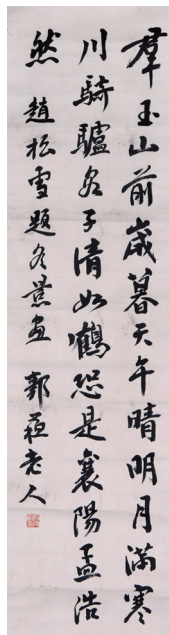 羣玉山前歲暮天午晴明月滿寒
川騎驢客子清如鶴恐是襄陽孟浩
然 趙松雪題冬景畫 老人